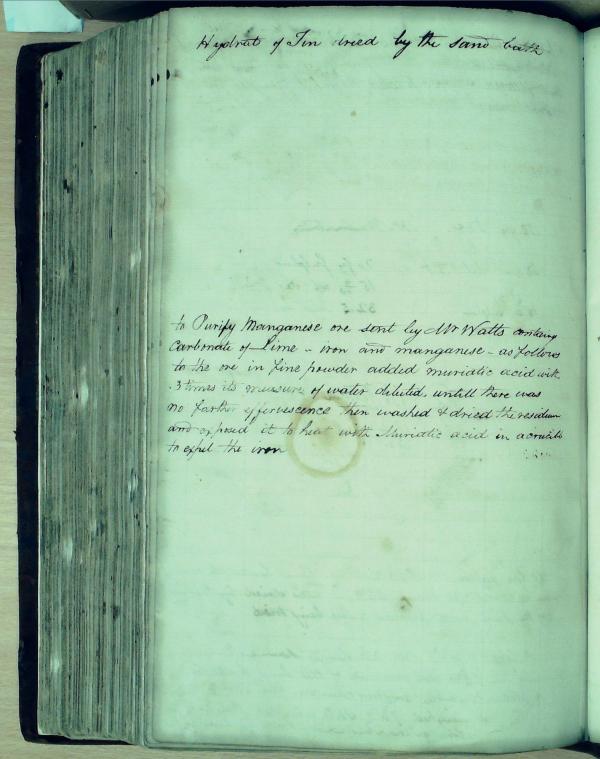 Hydrat of Tin dried by the sand bath
to Purify Manganese ore sent by Mr Watts containing
Carbonate of Lime - iron and manganese - as follows
to the ore in fine powder added muriatic acid with
3 times its measure of water diluted, untill there was
no farther effervescence then washed & dried the residuum
and exposed it to heat with Muriatic acid in a crucible
to expel the iron